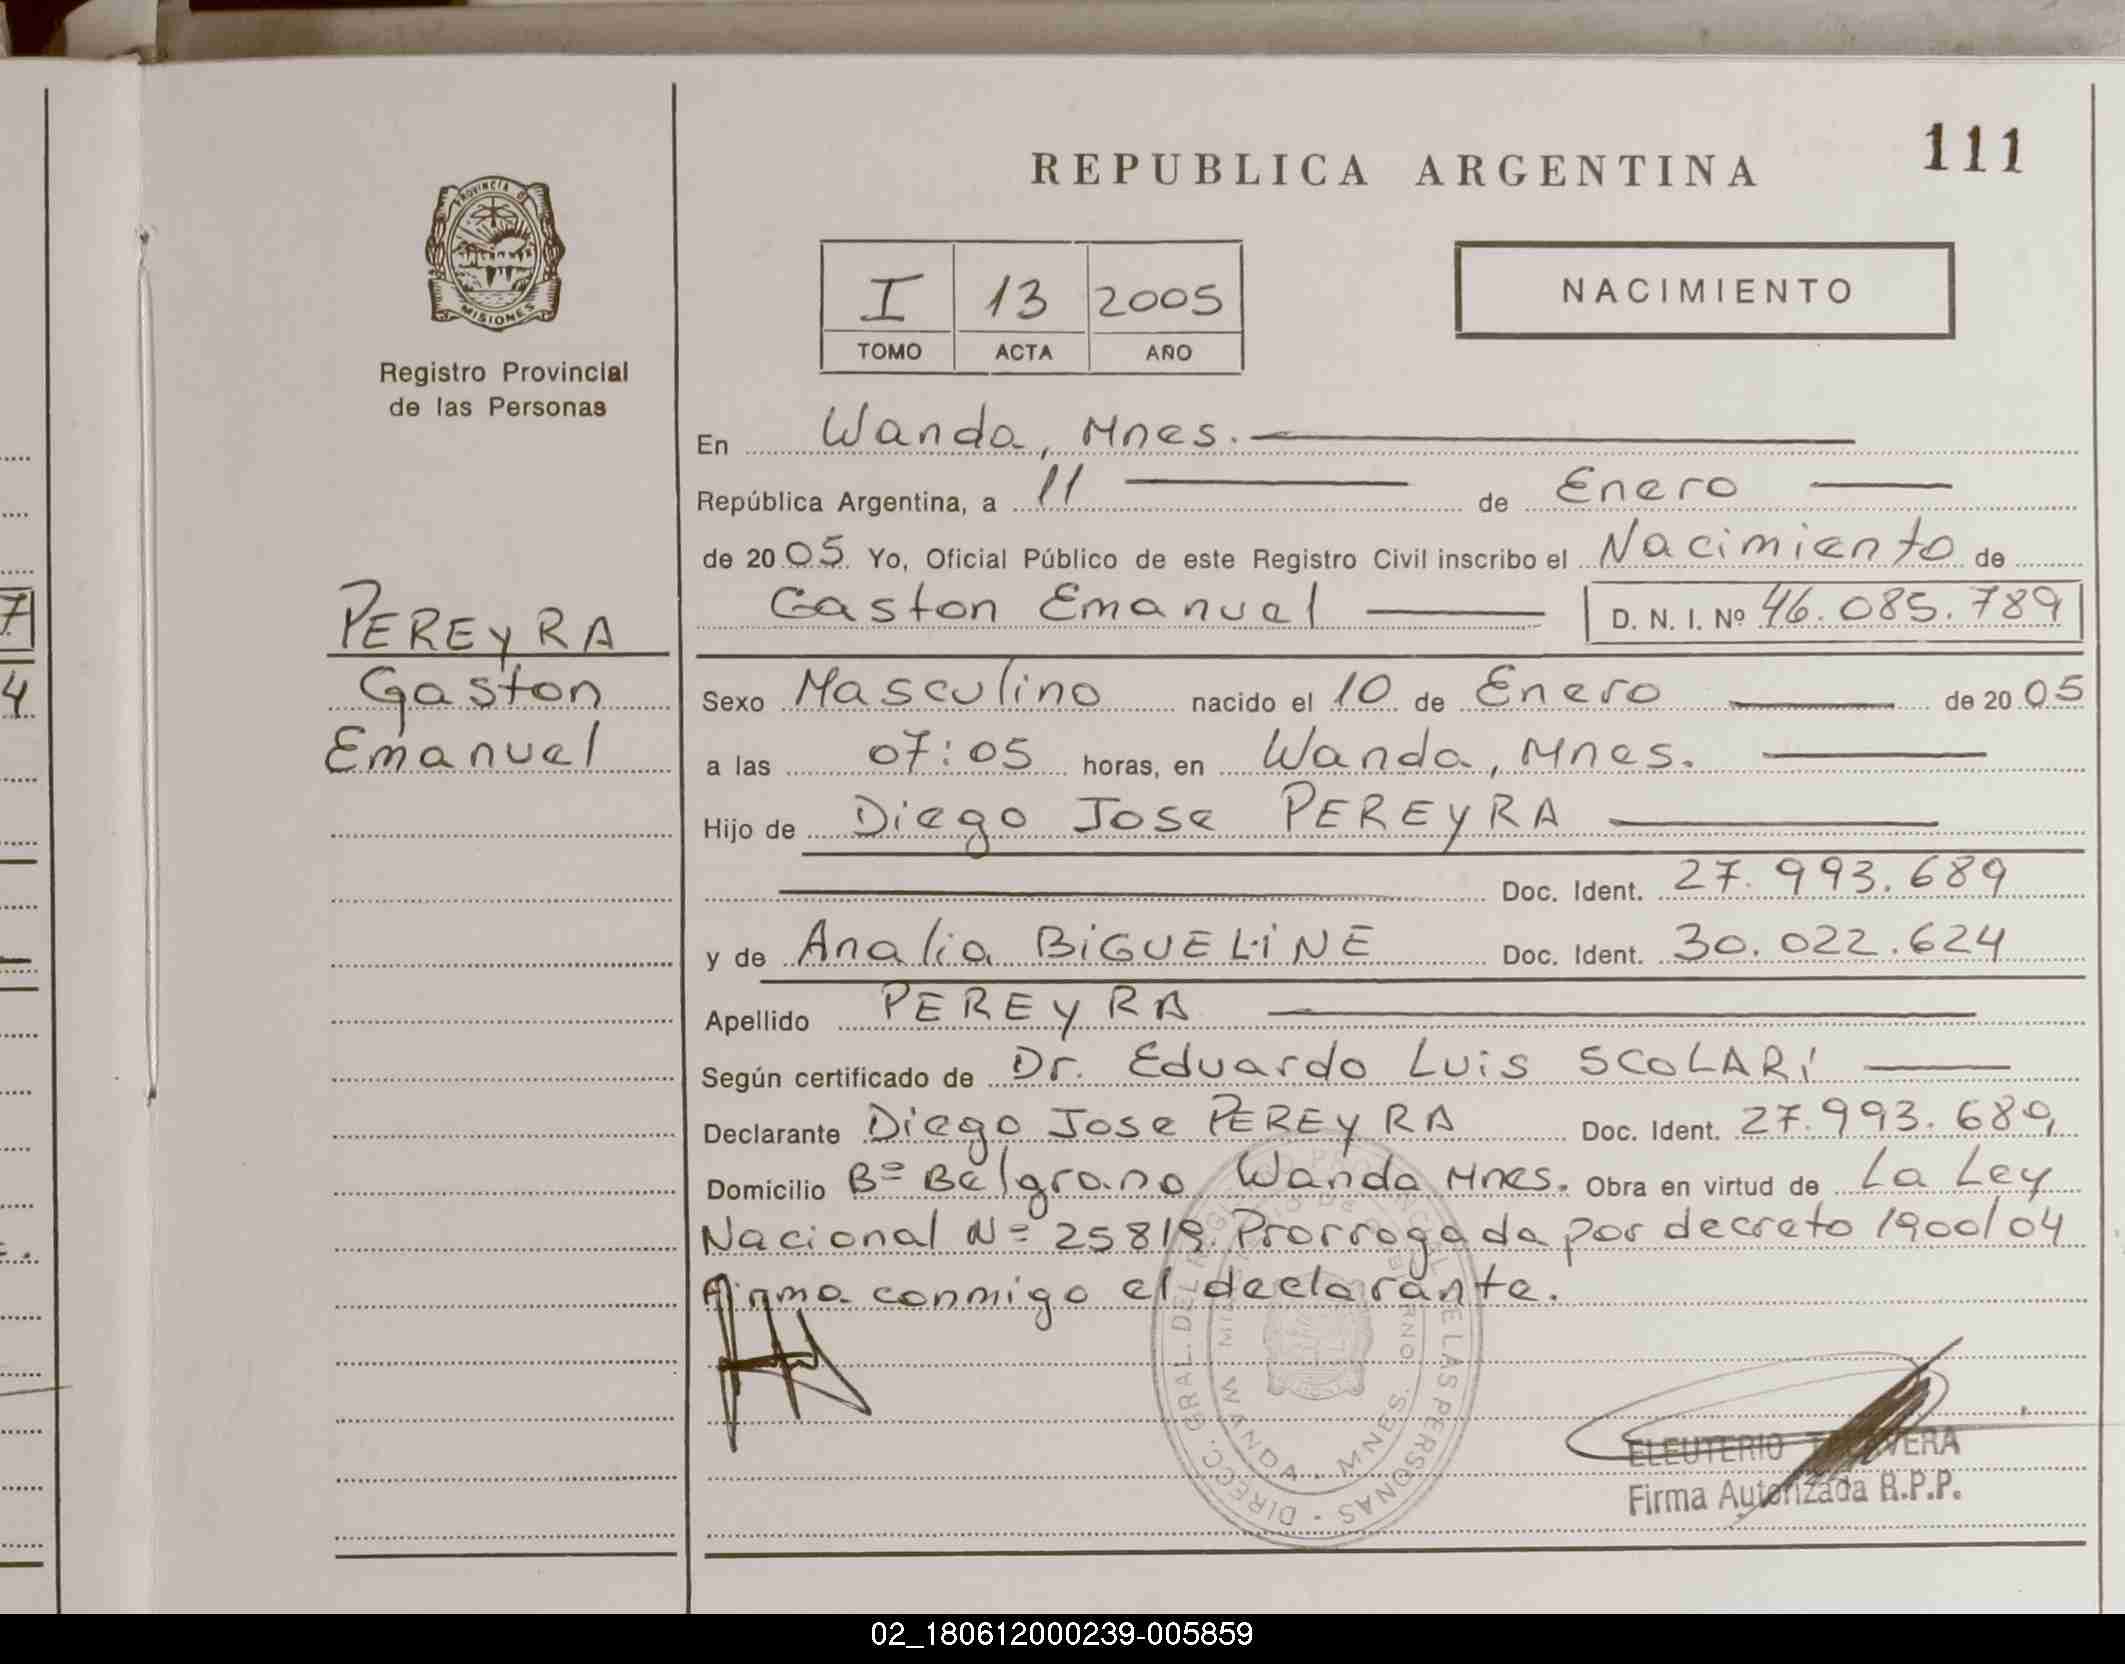 111
REPUBLICA ARGENTINA
PROVINCIA DE
MISIONES
Registro Provincial
de las Personas
I 13 2005
TOMO ACTA AÑO
NACIMIENTO
En Wanda, Mnes.
República Argentina, a 11 de Enero
de 2005. Yo, Oficial Público de este Registro Civil inscribo el Nacimiento de
Gaston Emanuel D. N. I. Nº 46.085.789
PEREYRA
Gaston
Emanuel
Sexo Masculino nacido el 10 de Enero de 2005
a las 07:05 horas, en Wanda, Mnes.
Hijo de Diego Jose PEREYRA
Doc. Ident. 27.993.689
y de Analia BIGUELINE Doc. Ident. 30.022.624
Apellido PEREYRA
Según certificado de Dr. Eduardo Luis SCOLARI
Declarante Diego Jose PEREYRA Doc. Ident. 27.993.689,
Domicilio Bº Belgrano Wanda Mnes. Obra en virtud de La Ley
Nacional Nº 25819. Prorrogada por decreto 1900/04
Firma conmigo el declarante.
DIRECC. GRAL. DEL REGISTRO PROVINCIAL DE LAS PERSONAS
WANDA - MNES.
ELEUTERIO
Firma Autorizada R.P.P.
7
4
02_180612000239-005859